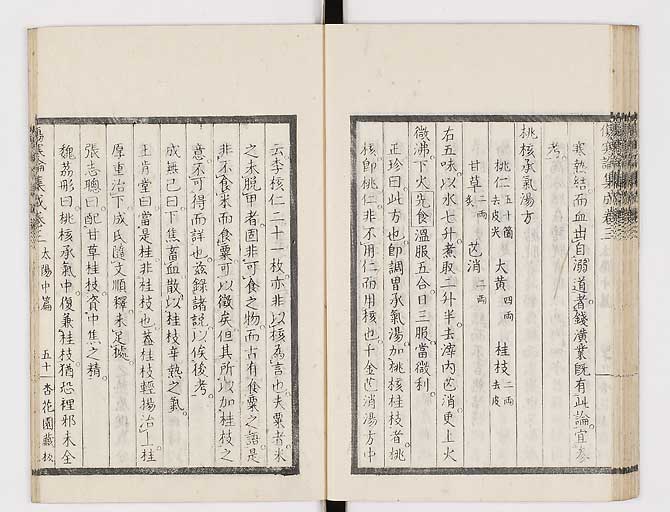 傷寒論集成卷三
寒熱結而血出自溺道者錢潢業既有此論宜參
考。
桃核承氣湯方
桃仁五十箇去皮尖　大黃四兩　桂枝二兩去皮
甘草二兩炙　芒消二兩
右五味以水七升煮取二升半去滓内芒消更上火
微沸下火先食溫服五合日三服當微利。
正珍曰此方也即調胃承氣湯加桃核桂枝者桃
核即桃仁非不用仁而用核也千金芒消湯方中
云李核仁二十一枚亦非以核為言也夫粟者米
之未脫甲者固非可食之物而古有食粟之語是
非不食米而食粟可以徵矣但其所以加桂枝之
意不可得而詳也茲錄諸說以俟後考。
成無己曰下焦蓄血散以桂枝辛熱之氣。
王肯堂曰當是桂非桂枝也蓋桂枝輕揚治上桂
厚重治下成氏隨文順釋未足據
張志聰曰配甘草桂枝資中焦之精。
魏荔彤曰桃核承氣中復兼桂枝猶恐裡邪未全
傷寒論集成卷三　太陽中篇　五十一　杏花園藏板